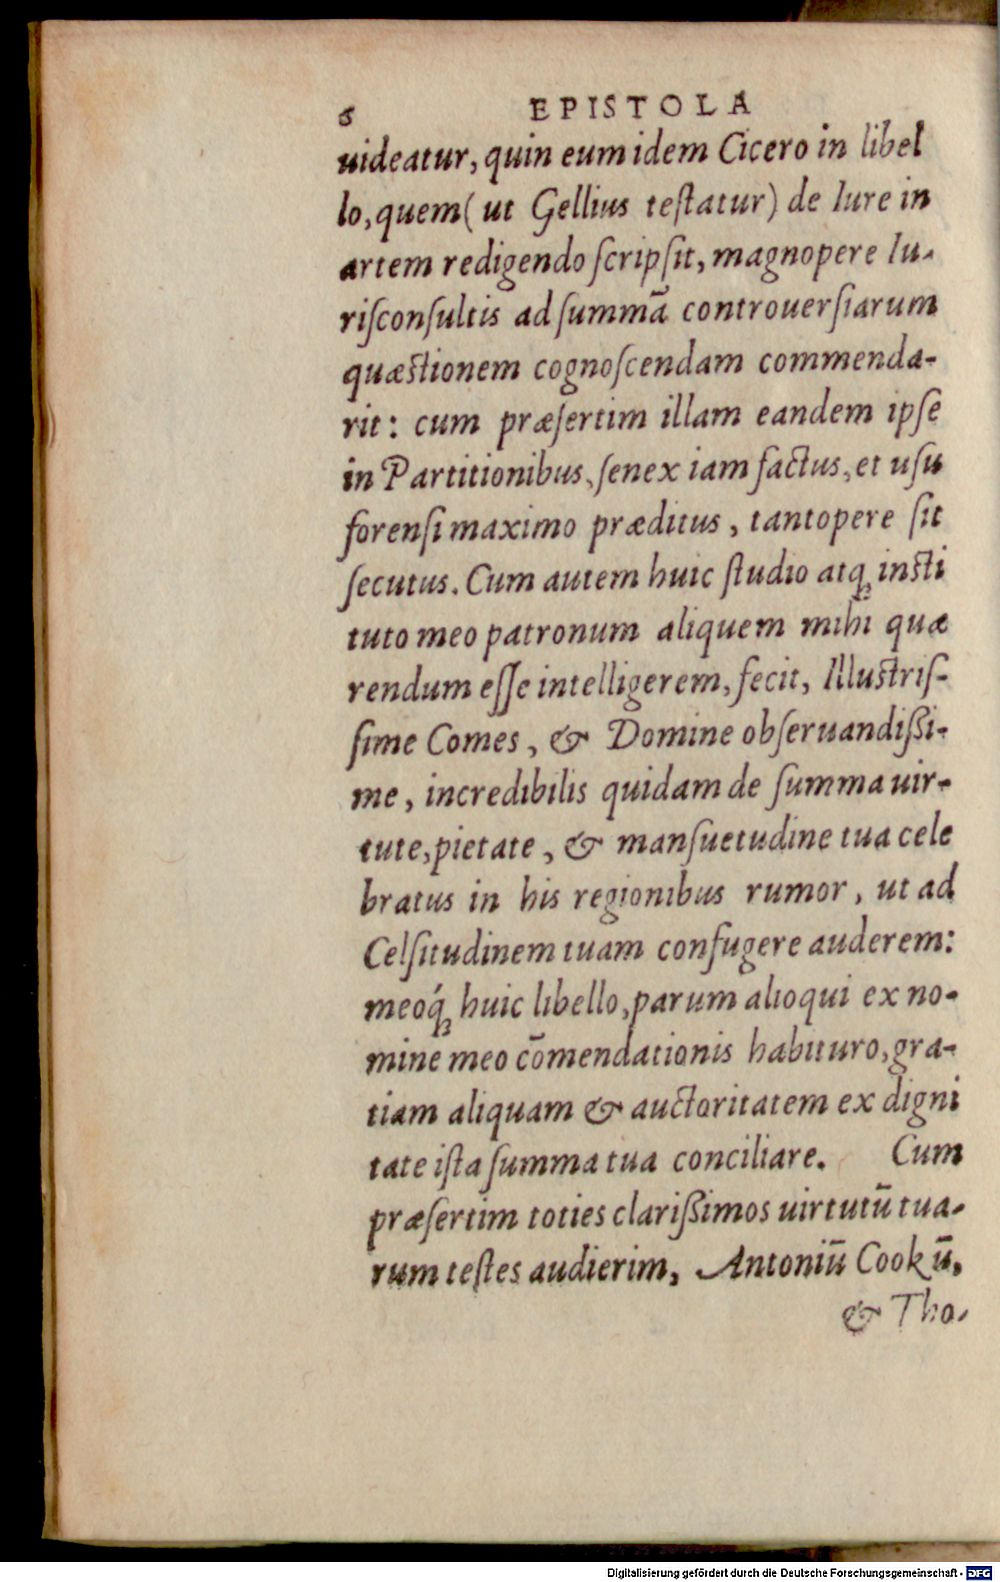 6 EPISTOLA
uideatur, quin eum idem Cicero in libel
lo, quem (ut Gellius teſtatur) de Iure in
artem redigendo ſcripſit, magnopere Iu-
riſconſultis ad ſummā controuerſiarum
quæſtionem cognoſcendam commenda-
rit: cum præſertim illam eandem ipſe
in Partitionibus, ſenex iam factus, et uſu
forenſi maximo præditus, tantopere ſit
ſecutus. Cum autem huic ſtudio atq; inſti
tuto meo patronum aliquem mihi quæ
rendum eſſe intelligerem, fecit, Illuſtriſ-
ſime Comes, & Domine obſeruandißi-
me, incredibilis quidam de ſumma uir-
tute, pietate, & manſuetudine tua cele
bratus in his regionibus rumor, ut ad
Celſitudinem tuam confugere auderem:
meoq́; huic libello, parum alioqui ex no-
mine meo cōmendationis habituro, gra-
tiam aliquam & auctoritatem ex digni
tate iſta ſumma tua conciliare. Cum
præſertim toties clarißimos uirtutū tua-
rum teſtes audierim, Antoniū Cookū,
& Tho-
Digitalisierung gefördert durch die Deutsche Forschungsgemeinschaft - DFG